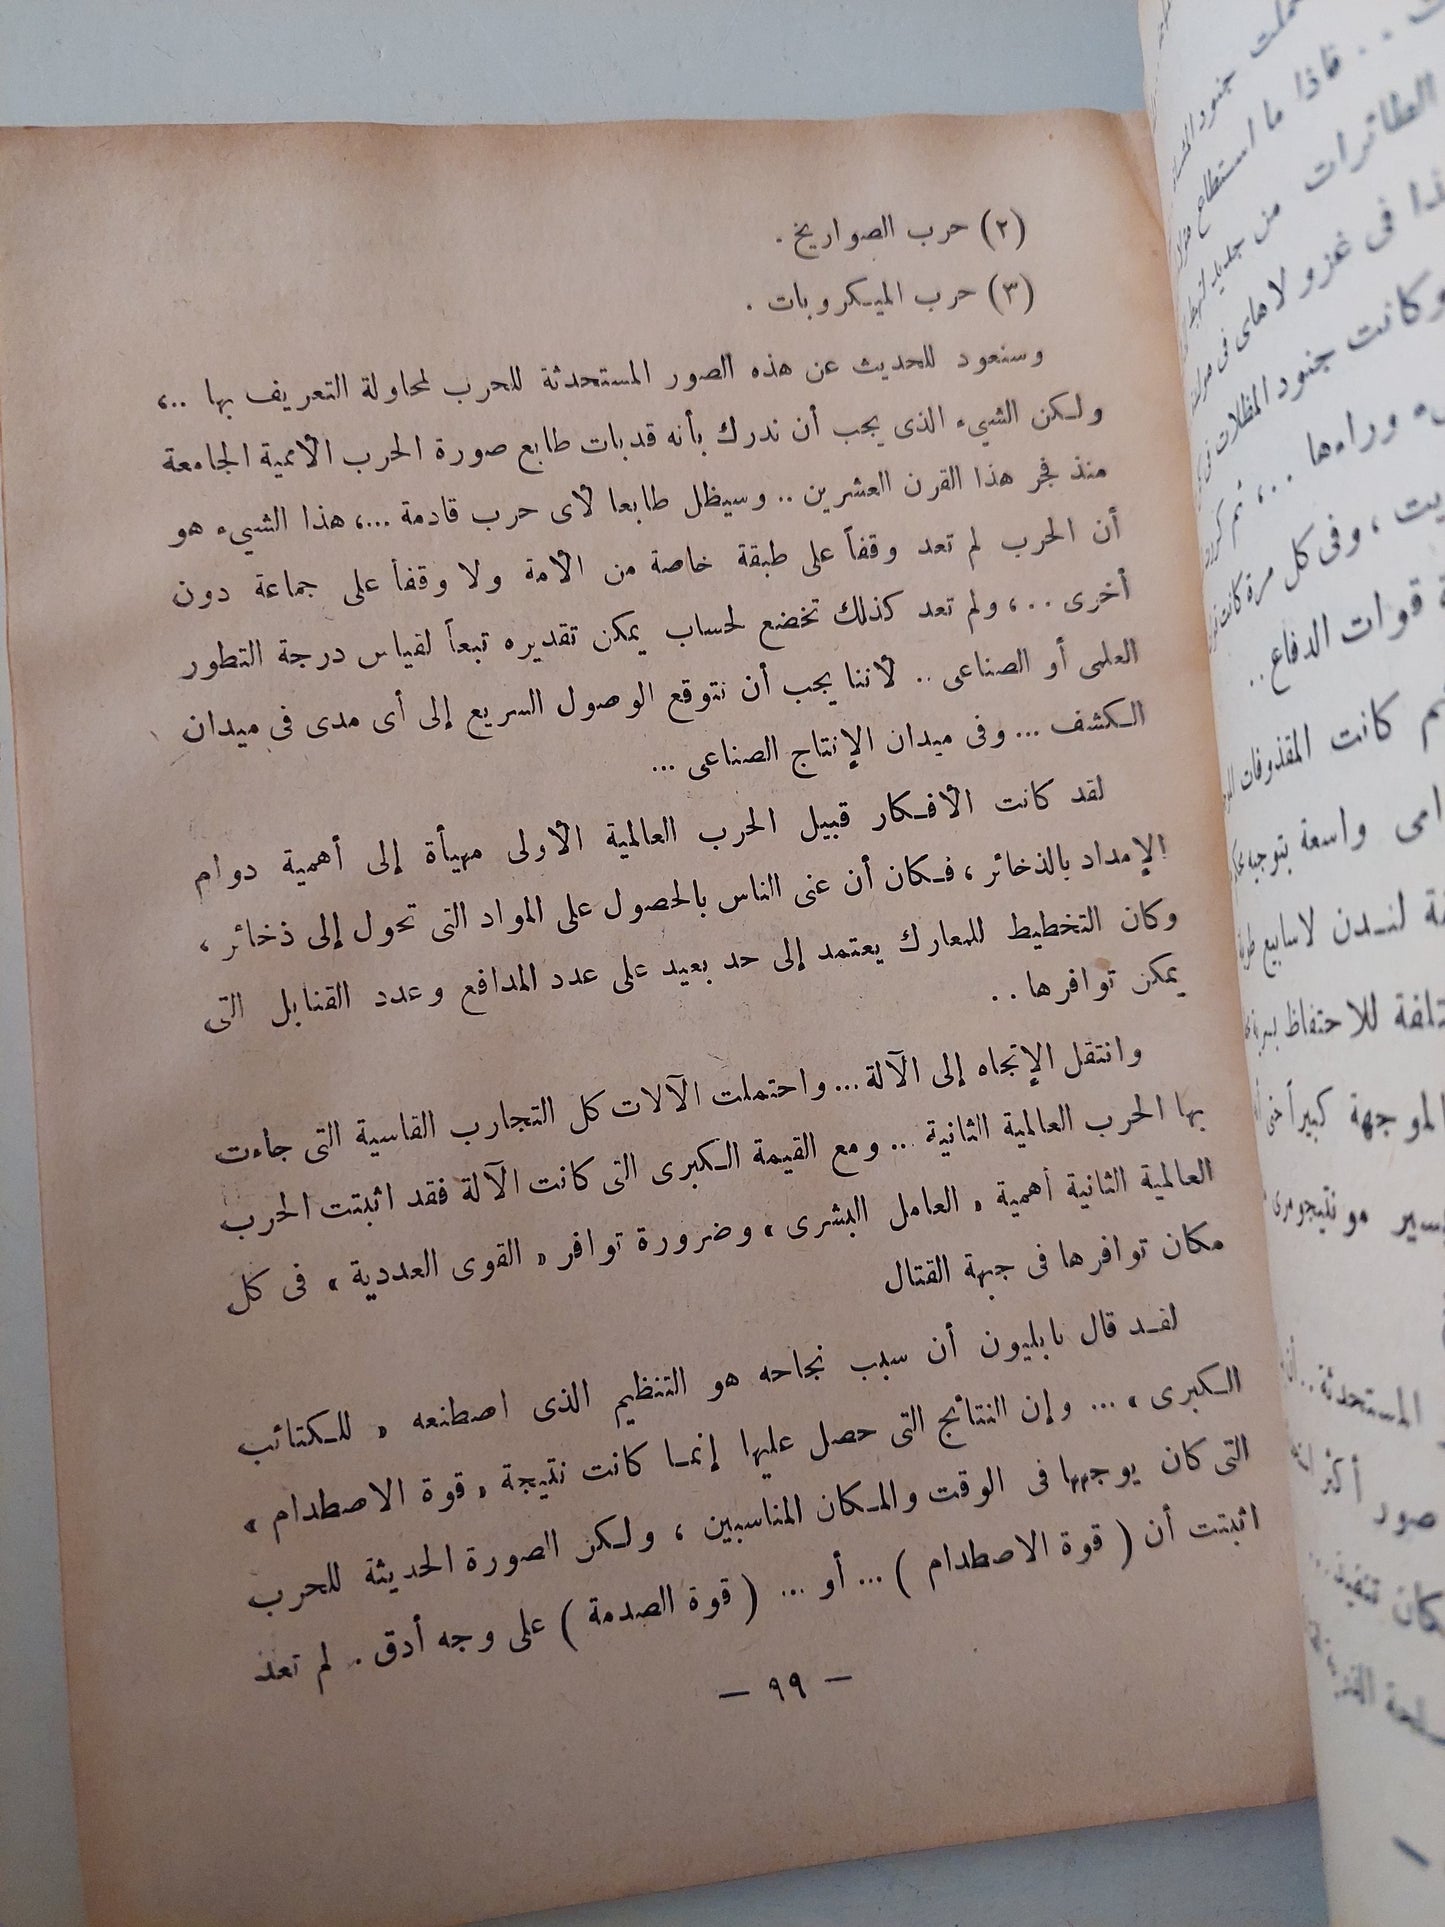 (٢) حرب الصواريخ .
(٣) حرب الميكروبات .
وسنعود للحديث عن هذه الصور المستحدثة للحرب لمحاولة التعريف بها ..،
ولكن الشيء الذى يجب أن ندرك بأنه قد بات طابع صورة الحرب الأممية الجامعة
منذ فجر هذا القرن العشرين .. وسيظل طابعا لأى حرب قادمة ...، هذا الشيء هو
أن الحرب لم تعد وقفاً على طبقة خاصة من الأمة ولا وقفاً على جماعة دون
أخرى ..، ولم تعد كذلك تخضع لحساب يمكن تقديره تبعاً لقياس درجة التطور
العلمى أو الصناعى .. لأننا يجب أن نتوقع الوصول السريع إلى أى مدى فى ميدان
الكشف ... وفى ميدان الإنتاج الصناعى ...
لقد كانت الأفكار قبيل الحرب العالمية الأولى مهيأة إلى أهمية دوام
الإمداد بالذخائر ، فكان أن عنى الناس بالحصول على المواد التى تحول إلى ذخائر ،
وكان التخطيط للمعارك يعتمد إلى حد بعيد على عدد المدافع وعدد القنابل التى
يمكن توافرها ..
وانتقل الإتجاه إلى الآلة ... واحتملت الآلات كل التجارب القاسية التى جاءت
بها الحرب العالمية الثانية ... ومع القيمة الكبرى التى كانت الآلة فقد اثبتت الحرب
العالمية الثانية أهمية « العامل البشرى » وضرورة توافر « القوى العددية » فى كل
مكان توافرها فى جبهة القتال
لقد قال نابليون أن سبب نجاحه هو التنظيم الذى اصطنعه « للكتائب
الكبرى » ... وإن النتائج التى حصل عليها إنما كانت نتيجة « قوة الاصطدام »
التى كان يوجهها فى الوقت والمكان المناسبين ، ولكن الصورة الحديثة للحرب
اثبتت أن ( قوة الاصطدام ) ... أو ... ( قوة الصدمة ) على وجه أدق . لم تعد
— ٩٩ —
جنود
.. فاذا ما استطاع
الطائرات من جديد
فى غزو لاهاى فى
وكانت جنود المظلات
وراءها ..، ثم
، وفى كل مرة كانت
قوات الدفاع ..
كانت المقذوفات
واسعة بتوجيه
لندن لاسابيع
للاحتفاظ
الموجهة كبيراً
مونتيجومرى
المستحدثة ..
أكثر